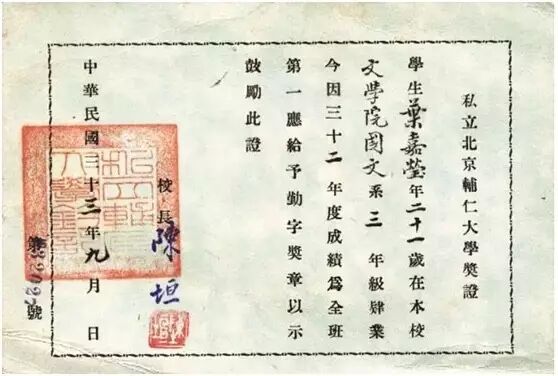 私立北京輔仁大學獎證
學生葉嘉瑩年二十一歲在本校
文學院國文系三年級肄業
今因三十二年度成績爲全班
第一應給予勤字獎章以示
鼓勵此證
校長陳垣
中華民國三十三年九月 日
第 號